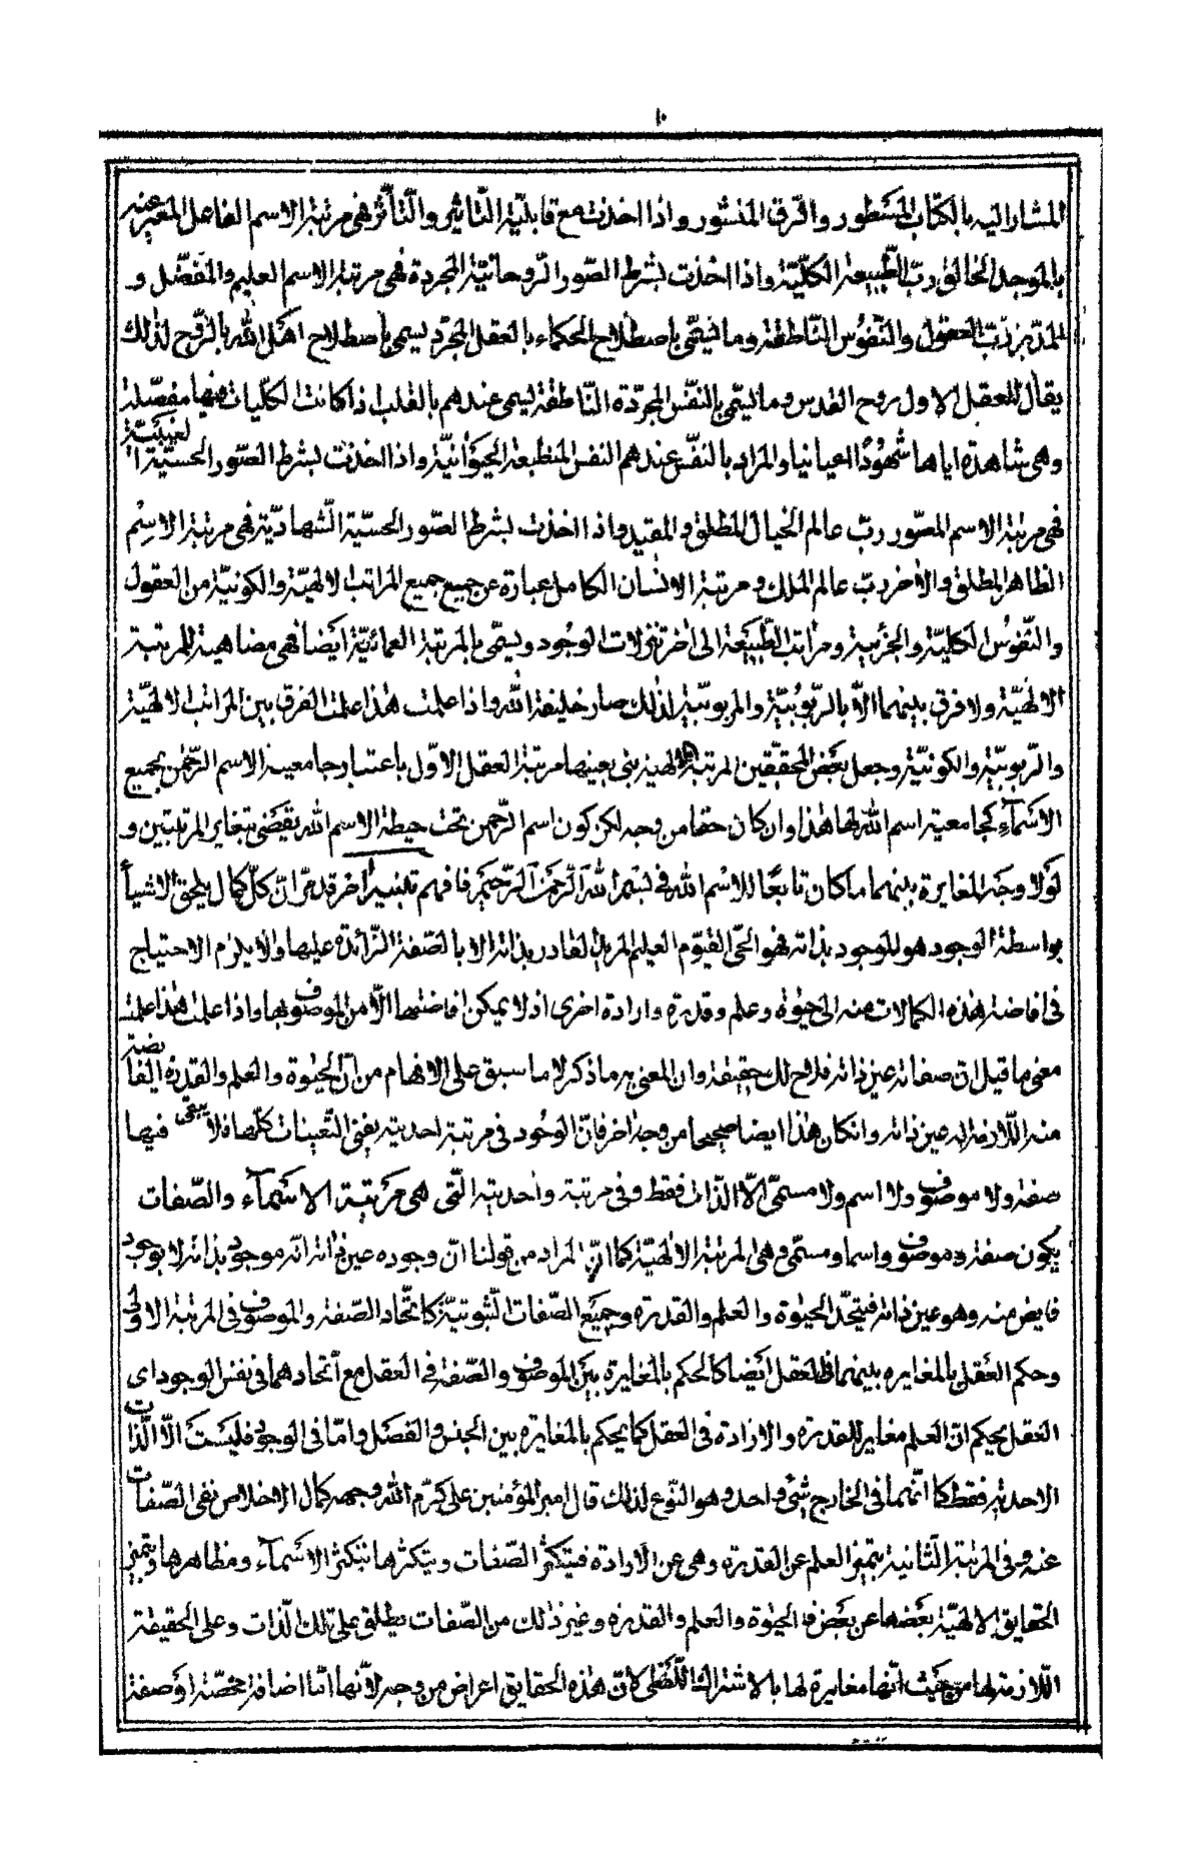 ١٠
المشار اليه بالكتاب المسطور والرق المنشور واذا اخذت مع قابلية التاثير والتأثر فهى مرتبة الاسم الفاعل المعبر عنه
بالموجد الخالق رب الطبيعة الكلية واذا اخذت بشرط الصور الروحانية المجردة فهى مرتبة الاسم العليم والمفضل و
المدبر رب العقول والنفوس الناطقة وما يسمى باصطلاح الحكماء بالعقل المجرد يسمى باصطلاح اهل الله بالروح لذلك
يقال للعقل الاول روح القدس وما يسمى بالنفس المجردة الناطقة يسمى عندهم بالقلب اذا كانت الكليات فيها مفصلة
وهى شاهدة اياها شهودا عيانيا والمراد بالنفس عندهم النفس المنطبعة الحيوانية واذا اخذت بشرط الصور الحسية الغيبية
فهى مرتبة الاسم المصور رب عالم الخيال المطلق والمقيد واذا اخذت بشرط الصور الحسية الشهادية فهى مرتبة الاسم
الظاهر المطلق والاخر رب عالم الملك ومرتبة الانسان الكامل عبارة عن جميع جميع المراتب الالهية والكونية من العقول
والنفوس الكلية والجزئية ومراتب الطبيعة الى اخر تنزلات الوجود ويسمى بالمرتبة العمائية ايضا فهى مضاهية للمرتبة
الالهية ولا فرق بينهما الا بالربوبية والمربوبية لذلك صار خليفة الله واذا علمت هذا علمت الفرق بين المراتب الالهية
والربوبية والكونية وجعل بعض المحققين المرتبة الالهية هى بعينها مرتبة العقل الاول باعتبار جامعية الاسم الرحمن لجميع
الاسمآء كجامعية اسم الله لها هذا وان كان حقا من وجه لكن كون اسم الرحمن تحت حيطة الاسم الله يقضى بتغاير المرتبتين و
لولا وجه المغايرة بينهما ما كان تابعا للاسم الله فى بسم الله الرحمن الرحيم فافهم تنبيه اخر قد مر ان كل كمال يلحق الاشيأ
بواسطة الوجود هو للوجود بذاته فهو الحى القيوم العليم المريد القادر بذاته لا بالصفة الزائدة عليها والا يلزم الاحتياج
فى افاضة هذه الكمالات منه الى حيوة وعلم وقدرة وارادة اخرى اذ لا يمكن افاضتها الا من الموصوف بها واذا علمت هذا علمت
معنى ما قيل ان صفاته عين ذاته فلاح لك حقيقة وان المعنى به ما ذكر لا ما سبق على الافهام من ان الحيوة والعلم والقدرة الفائضة
منه اللازمة له عين ذاته وانكان هذا ايضا صحيحا من وجه اخر فان الوجود فى مرتبة احديته ينفى التعينات كلها فلا يبقى فيها
صفة ولا موصوف ولا اسم ولا مسمى الا الذات فقط وفى مرتبة واحديته التى هى مرتبة الاسمآء والصفات
يكون صفة وموصوف واسما ومسمى وهى المرتبة الالهية كما ان المراد من قولنا ان وجوده عين ذاته انه موجود بذاته لا بوجود
فايض منه وهو عين ذاته فيتحد الحيوة والعلم والقدرة وجميع الصفات الثبوتية كاتحاد الصفة والموصوف فى المرتبة الاولى
وحكم العقل بالمغايرة بينهما فى العقل ايضا كالحكم بالمغايرة بين الموصوف والصفة فى العقل مع اتحادهما فى نفس الوجود اى
العقل يحكم ان العلم مغاير للقدرة والارادة فى العقل كما يحكم بالمغايرة بين الجنس والفصل واما فى الوجود فليست الا الذات
الاحدية فقط كما انهما فى الخارج شئ واحد وهو النوع لذلك قال امير المؤمنين على كرم الله وجهه كمال الاخلاص نفى الصفات
عنه وفى المرتبة الثانية يتميز العلم عن القدرة وهى عن الارادة فيتكثر الصفات وبتكثرها يتكثر الاسمآء ومظاهرها ويتميز
الحقايق الالهية بعضها عن بعض فالحيوة والعلم والقدرة وغير ذلك من الصفات يطلق على تلك الذات وعلى الحقيقة
اللازمة لها من حيث انها مغايرة لها بالاشتراك اللفظى كان هذه الحقايق اعراض من وجه لانها اما اضافة محضة او صفة